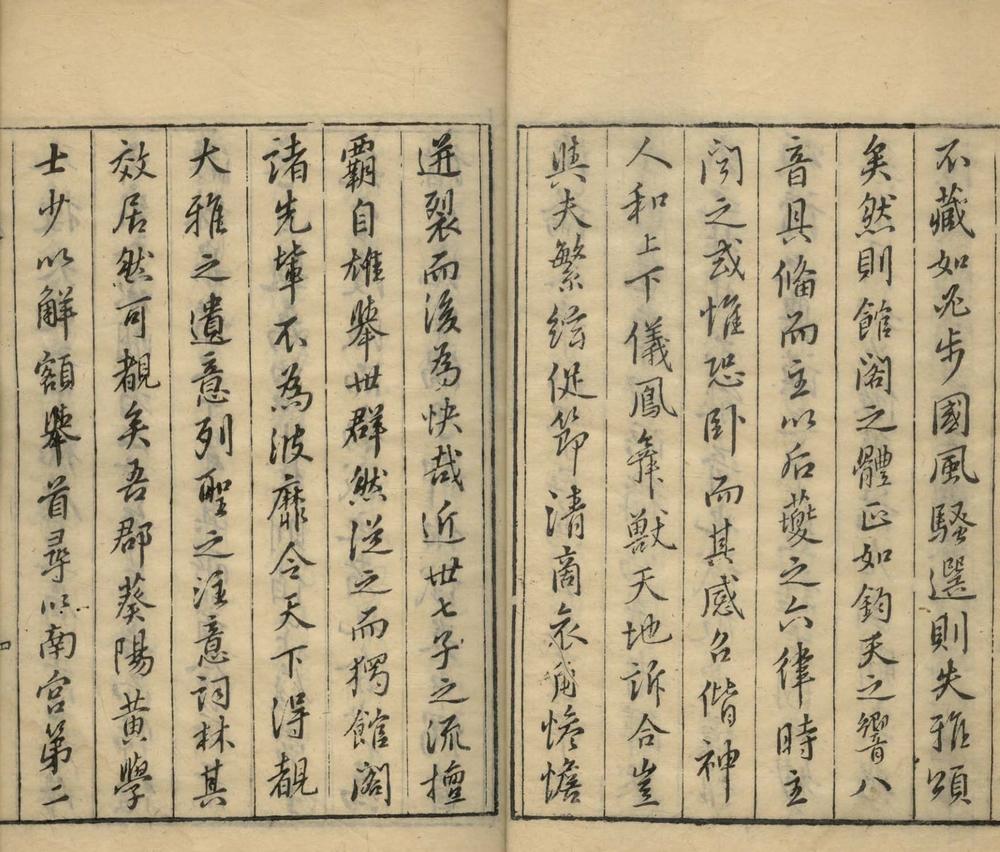 不藏如跬步國風騷選則失雅頌
矣然則館閣之體正如鈞天之響八
音具脩而主以后夔之六律時主
聞之或惟恐卧而其感召偕神
人和上下儀鳳舞獸天地訢合豈
與夫繁絃促節清商衣角惨憺
迸裂而後為快哉近世七子之流擅
覇自雄舉世群然從之而獨館閣
諸先輩不為波靡令天下得覩
大雅之遺意列聖之注意詞林其
效居然可覩矣吾郡葵陽黄學
士少以解額舉首尋以南宫第二
四